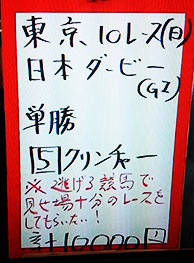 東京、10レース(日)
日本ダービー
(GI)
単勝
5 クリンチャー
※逃げる競馬で
見せ場十分のレースを
してもらいたい!
計10000円